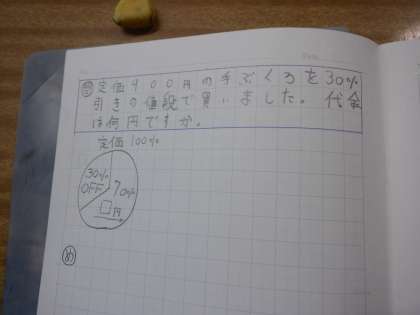 問 定価900円の手ぶくろを30%
引きの値段で買いました。代金
は何円ですか。
定価100%
30%
OFF
70%
□円
め